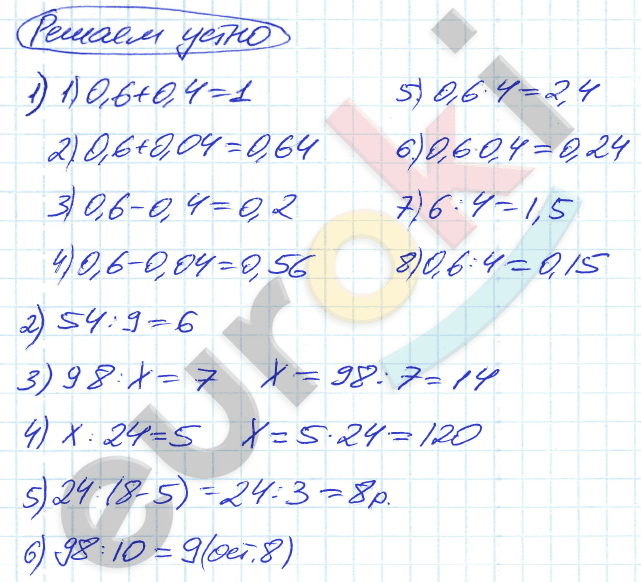 Решаем устно
1) 1) 0,6+0,4=1
2) 0,6+0,04=0,64
3) 0,6-0,4=0,2
4) 0,6-0,04=0,56
5) 0,6·4=2,4
6) 0,6·0,4=0,24
7) 6:4=1,5
8) 0,6:4=0,15
2) 54:9=6
3) 98:x=7 x=98:7=14
4) x:24=5 x=5·24=120
5) 24:(8-5)=24:3=8р.
6) 98:10=9(ост.8)
euroki